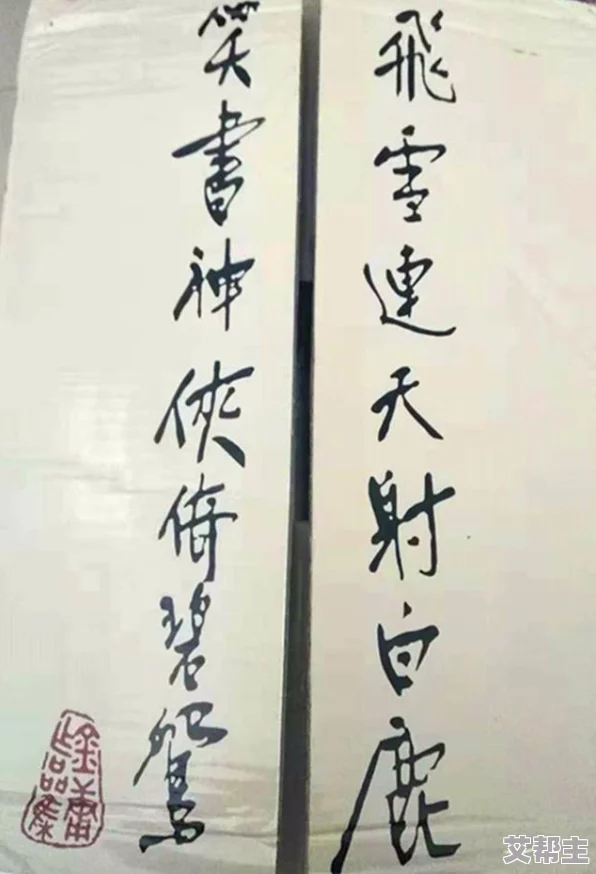 飛雪連天射白鹿
笑書神俠倚碧鴛
金庸作品集
艾帮主